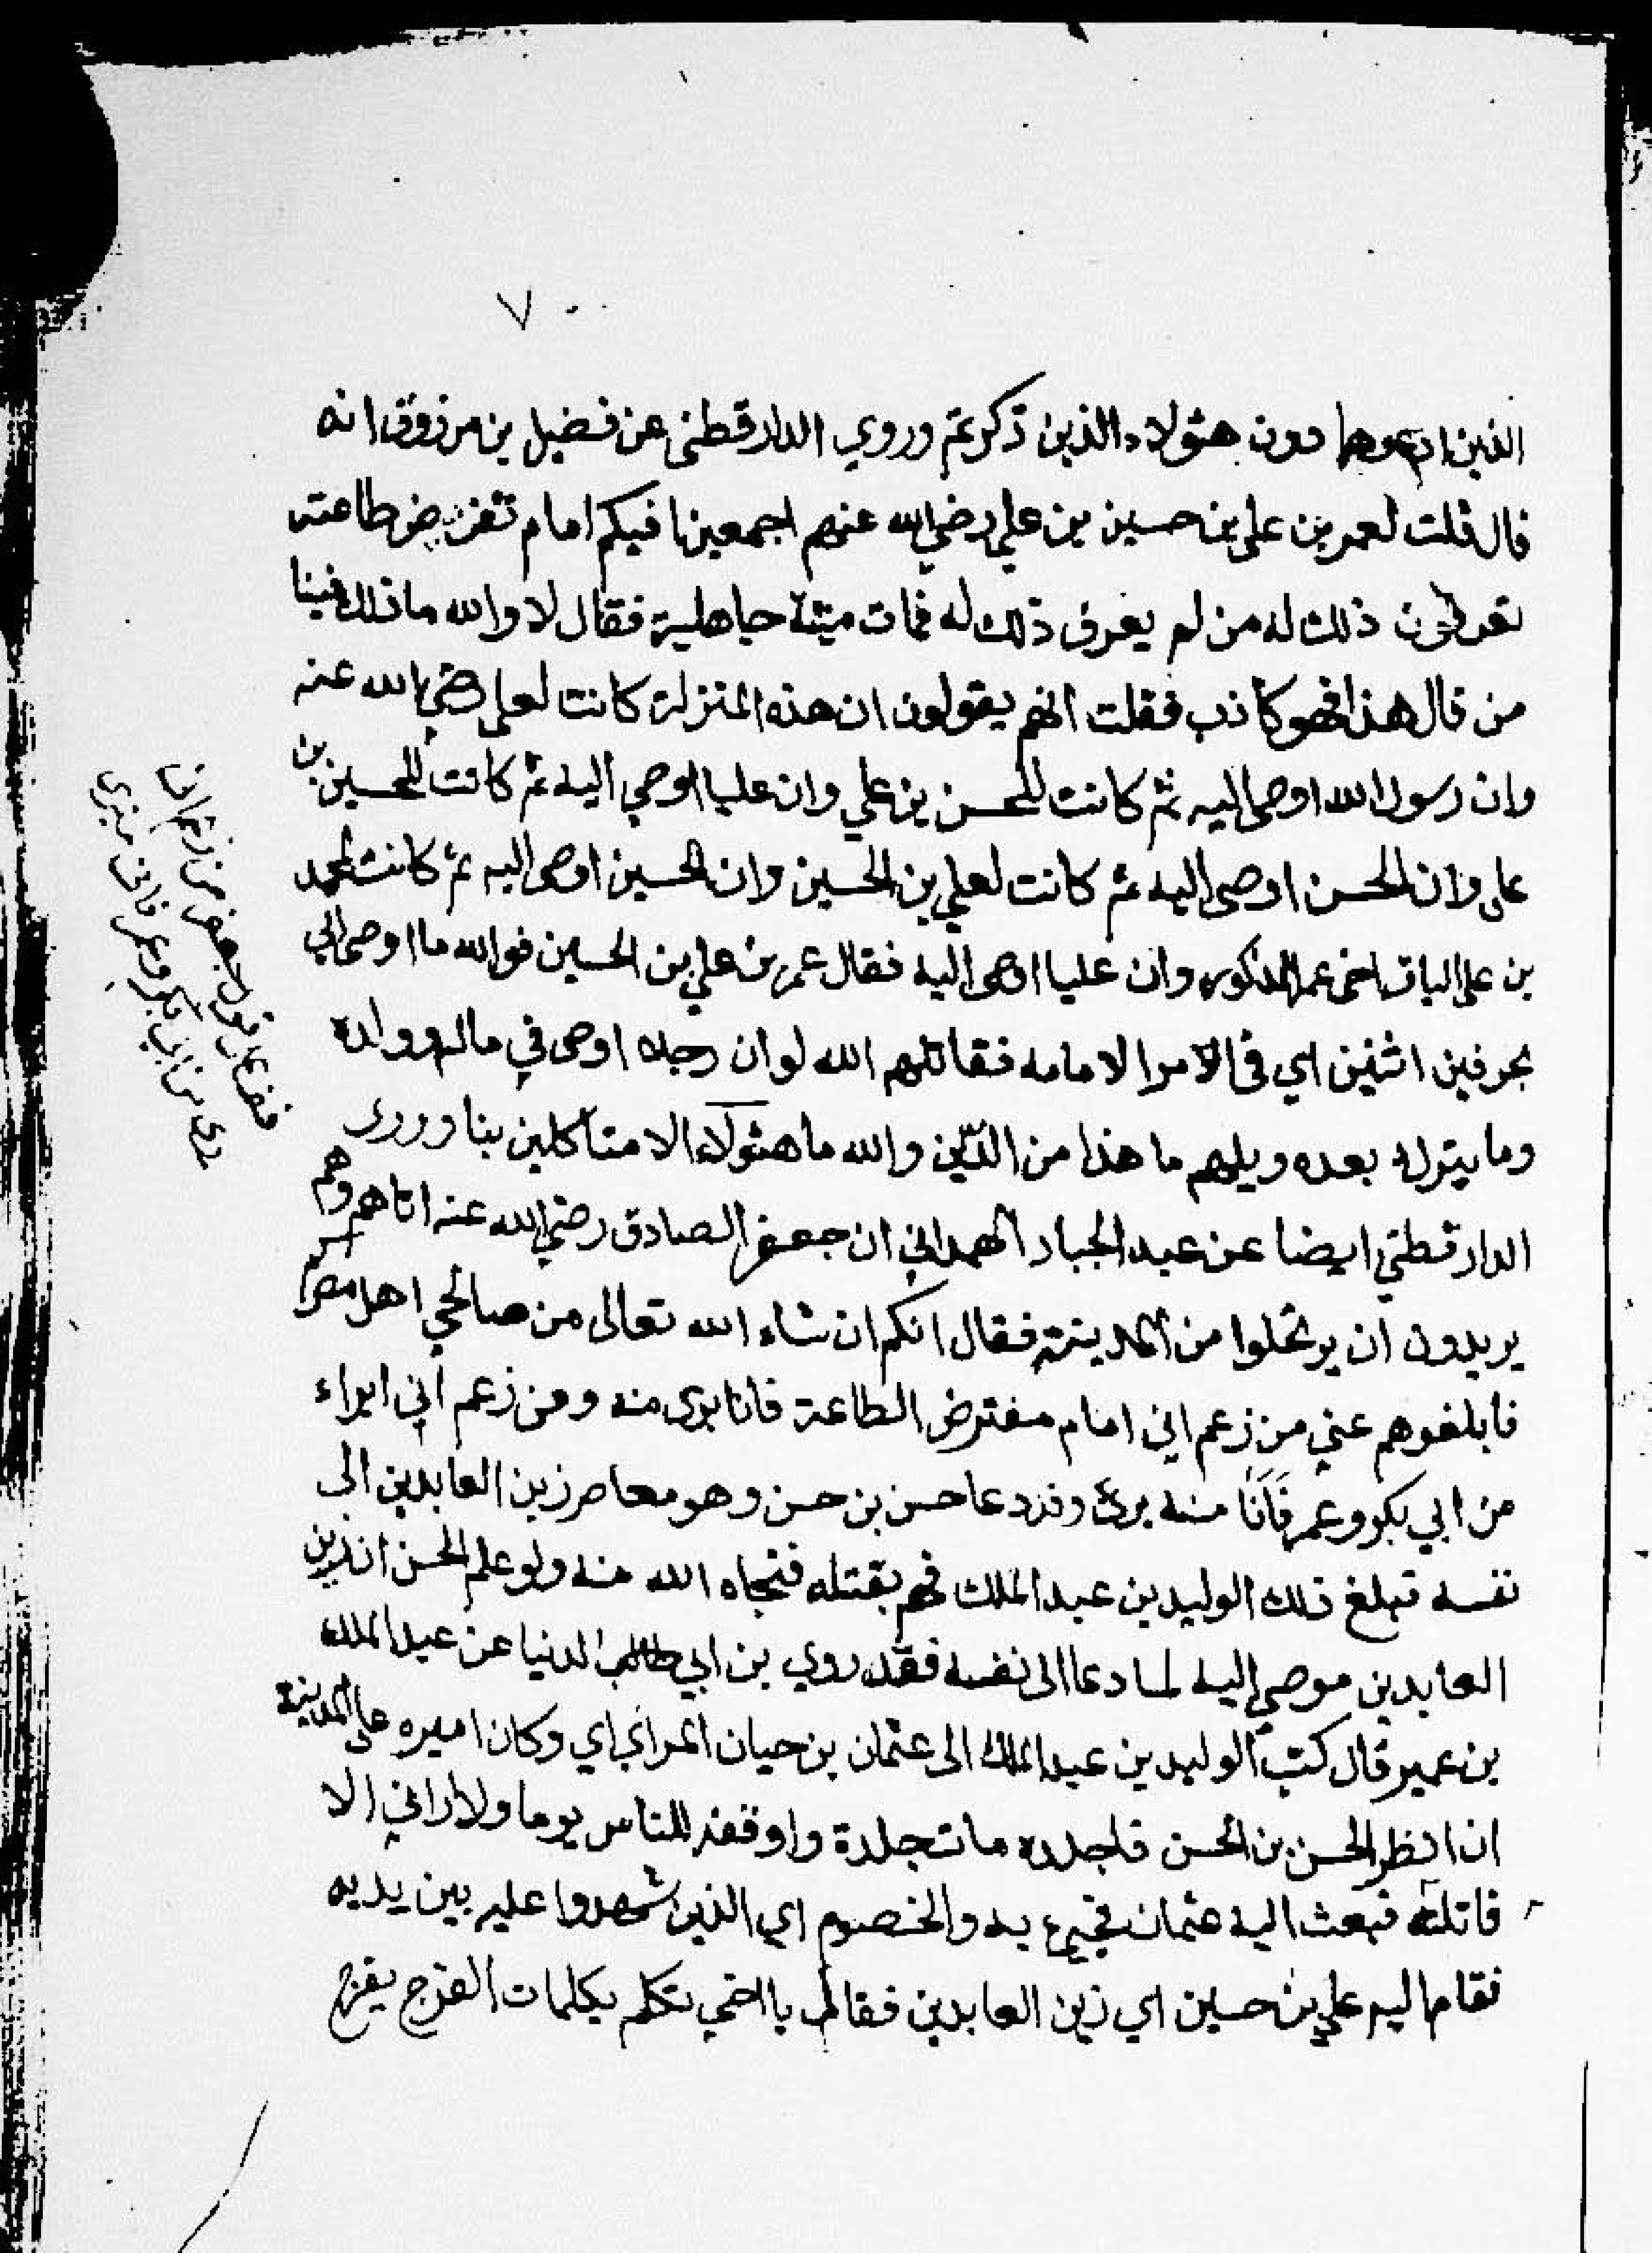 ٧٠
الذين ادعوها دون هئولاء الذين ذكرتم وروي الدارقطني عن فضيل بن مرزوق انه
قال قلت لعمر بن علي بن حسين بن علي رضي الله عنهم اجمعين افيكم امام تفترض طاعته
تعرفون ذلك له من لم يعرف ذلك له فمات ميتة جاهلية فقال لا والله ما ذلك فينا
من قال هذا فهو كاذب فقلت انهم يقولون ان هذه المنزلة كانت لعلي رضي الله عنه
وان رسول الله اوصى اليه ثم كانت للحسن بن علي وان عليا اوصي اليه ثم كانت للحسين بن
علي وان الحسن اوصى اليه ثم كانت لعلي بن الحسين وان الحسين اوصى اليه ثم كانت لمحمد
بن علي الباقر اخى عمر المذكور وان عليا اوصى اليه فقال عمر بن علي بن الحسين فوالله ما اوصى ابي
بحرفين اثنين اي في الامر الامامه فقاتلهم الله لو ان رجلا اوصى في ماله وولده
وما يترك بعده ويلهم ما هذا من الدين والله ما هئولاء الا متاكلين بنا وروى
الدارقطني ايضا عن عبد الجبار الهمداني ان جعفر الصادق رضي الله عنه اتاهم وهم
يريدون ان يرتحلوا من المدينة فقال انكم ان شاء الله تعالى من صالحي اهل مصركم
فابلغوهم عني من زعم اني امام مفترض الطاعة فانا برى منه ومن زعم اني ابراء
من ابي بكر وعمر فَاَنَا منه برئ وقد دعا حسن بن حسن وهو معاصر زين العابدين الى
نفسه فبلغ ذلك الوليد بن عبد الملك فهم بقتله فنجاه الله منه ولو علم الحسن ان زين
العابدين موصي اليه لما دعا الى نفسه فقد روي بن ابي الدنيا عن عبد الملك
بن عمير قال كتب الوليد بن عبد الملك الى عثمان بن حيان المراي اي وكان اميره على المدينة
ان انظر الحسن بن الحسن فاجلده مائة جلدة واوقفه للناس يوما ولا اراني الا
قاتله فبعث اليه عثمان فجيء به والخصوم اي الذين شهدوا عليه بين يديه
فقام اليه علي بن حسين اي زين العابدين فقال يا اخي تكلم بكلمات الفرج يفرج